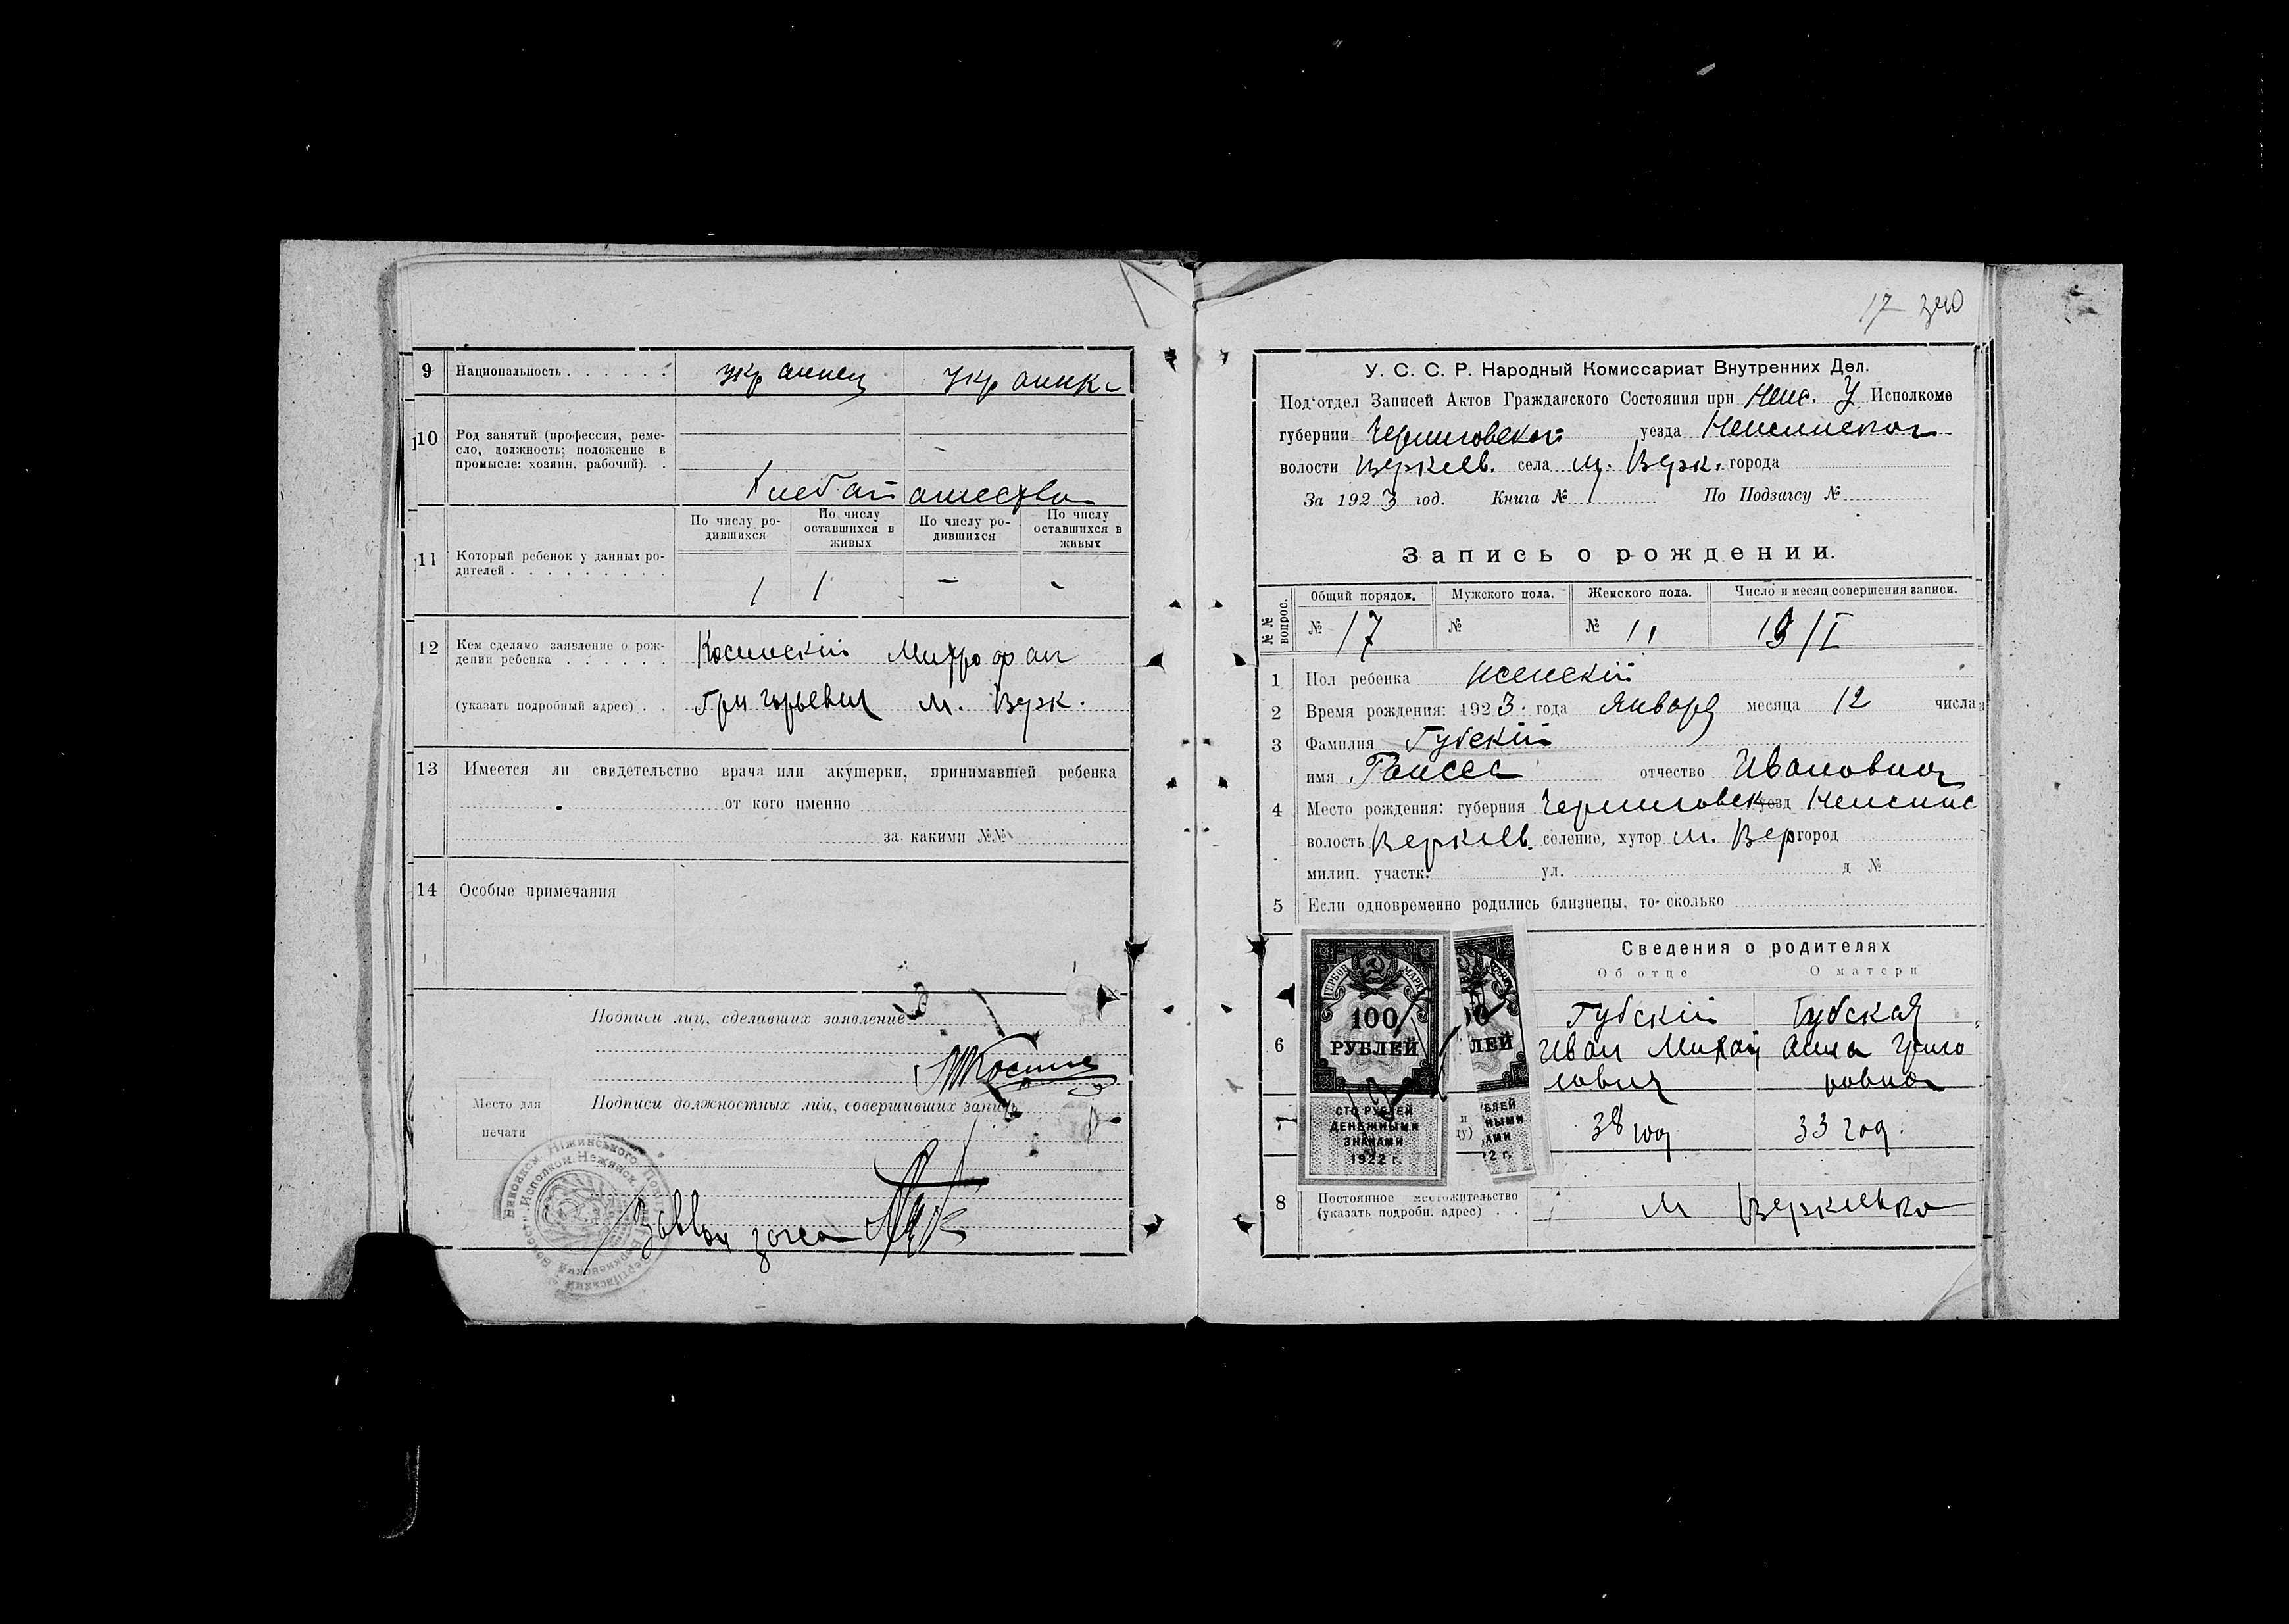 9 Национальность . . . . . . украинец украинка
10 Род занятий (профессия, реме-
сло, должность; положение в
промысле: хозяин, рабочий). .
хлебопашество
По числу ро-
дившихся
По числу
оставшихся в
живых
По числу ро-
дившихся
По числу
оставшихся в
живых
11 Который ребенок у данных ро-
дителей . . . . . . . . . 1 1 – -
12 Кем сделано заявление о рож-
дении ребенка . . . . . . Митрофан
(указать подробный адрес) . . Григорьевич м. Верк.
13 Имеется ли свидетельство врача или акушерки, принимавшей ребенка
от кого именно
за какими №№
14 Особые примечания
Подписи лиц, сделавших заявление
Подписи должностных лиц, совершивших запись
Место для
печати
17 340
У. С. С. Р. Народный Комиссариат Внутренних Дел.
Под'отдел Записей Актов Гражданского Состояния при Неж. У Исполкоме
губернии Черниговской уезда Неженского
волости Веркиев. села м. Верк. города
За 1923 год. Книга № По Подзагсу №
Запись о рождении.
№ № вопрос.
Общий порядов. Мужского пола. Женского пола. Число и месяц совершения записи.
№ 17 № № 11 19/I
1 Пол ребенка женский
2 Время рождения: 1923. года Января месяца 12 числа
3 Фамилия Губский
имя Раиса отчество Ивановна
4 Место рождения: губерния Черниговск уезд Неженс
волость Веркиев. селение, хутор м. Вер город
милиц. участк. ул. д №
5 Если одновременно родились близнецы, то сколько
Сведения о родителях
Об отце О матери
6 Губский Губская
Иван Михай Анна
лович
7 38 год 33 год.
8 Постоянное местожительство
(указать подробн. адрес) . . м Веркиевка
ГЕРБОВ МАРКА
100
РУБЛЕЙ
СТО РУБЛЕЙ
ДЕНЕЖНЫМИ
ЗНАКАМИ
1922 г.